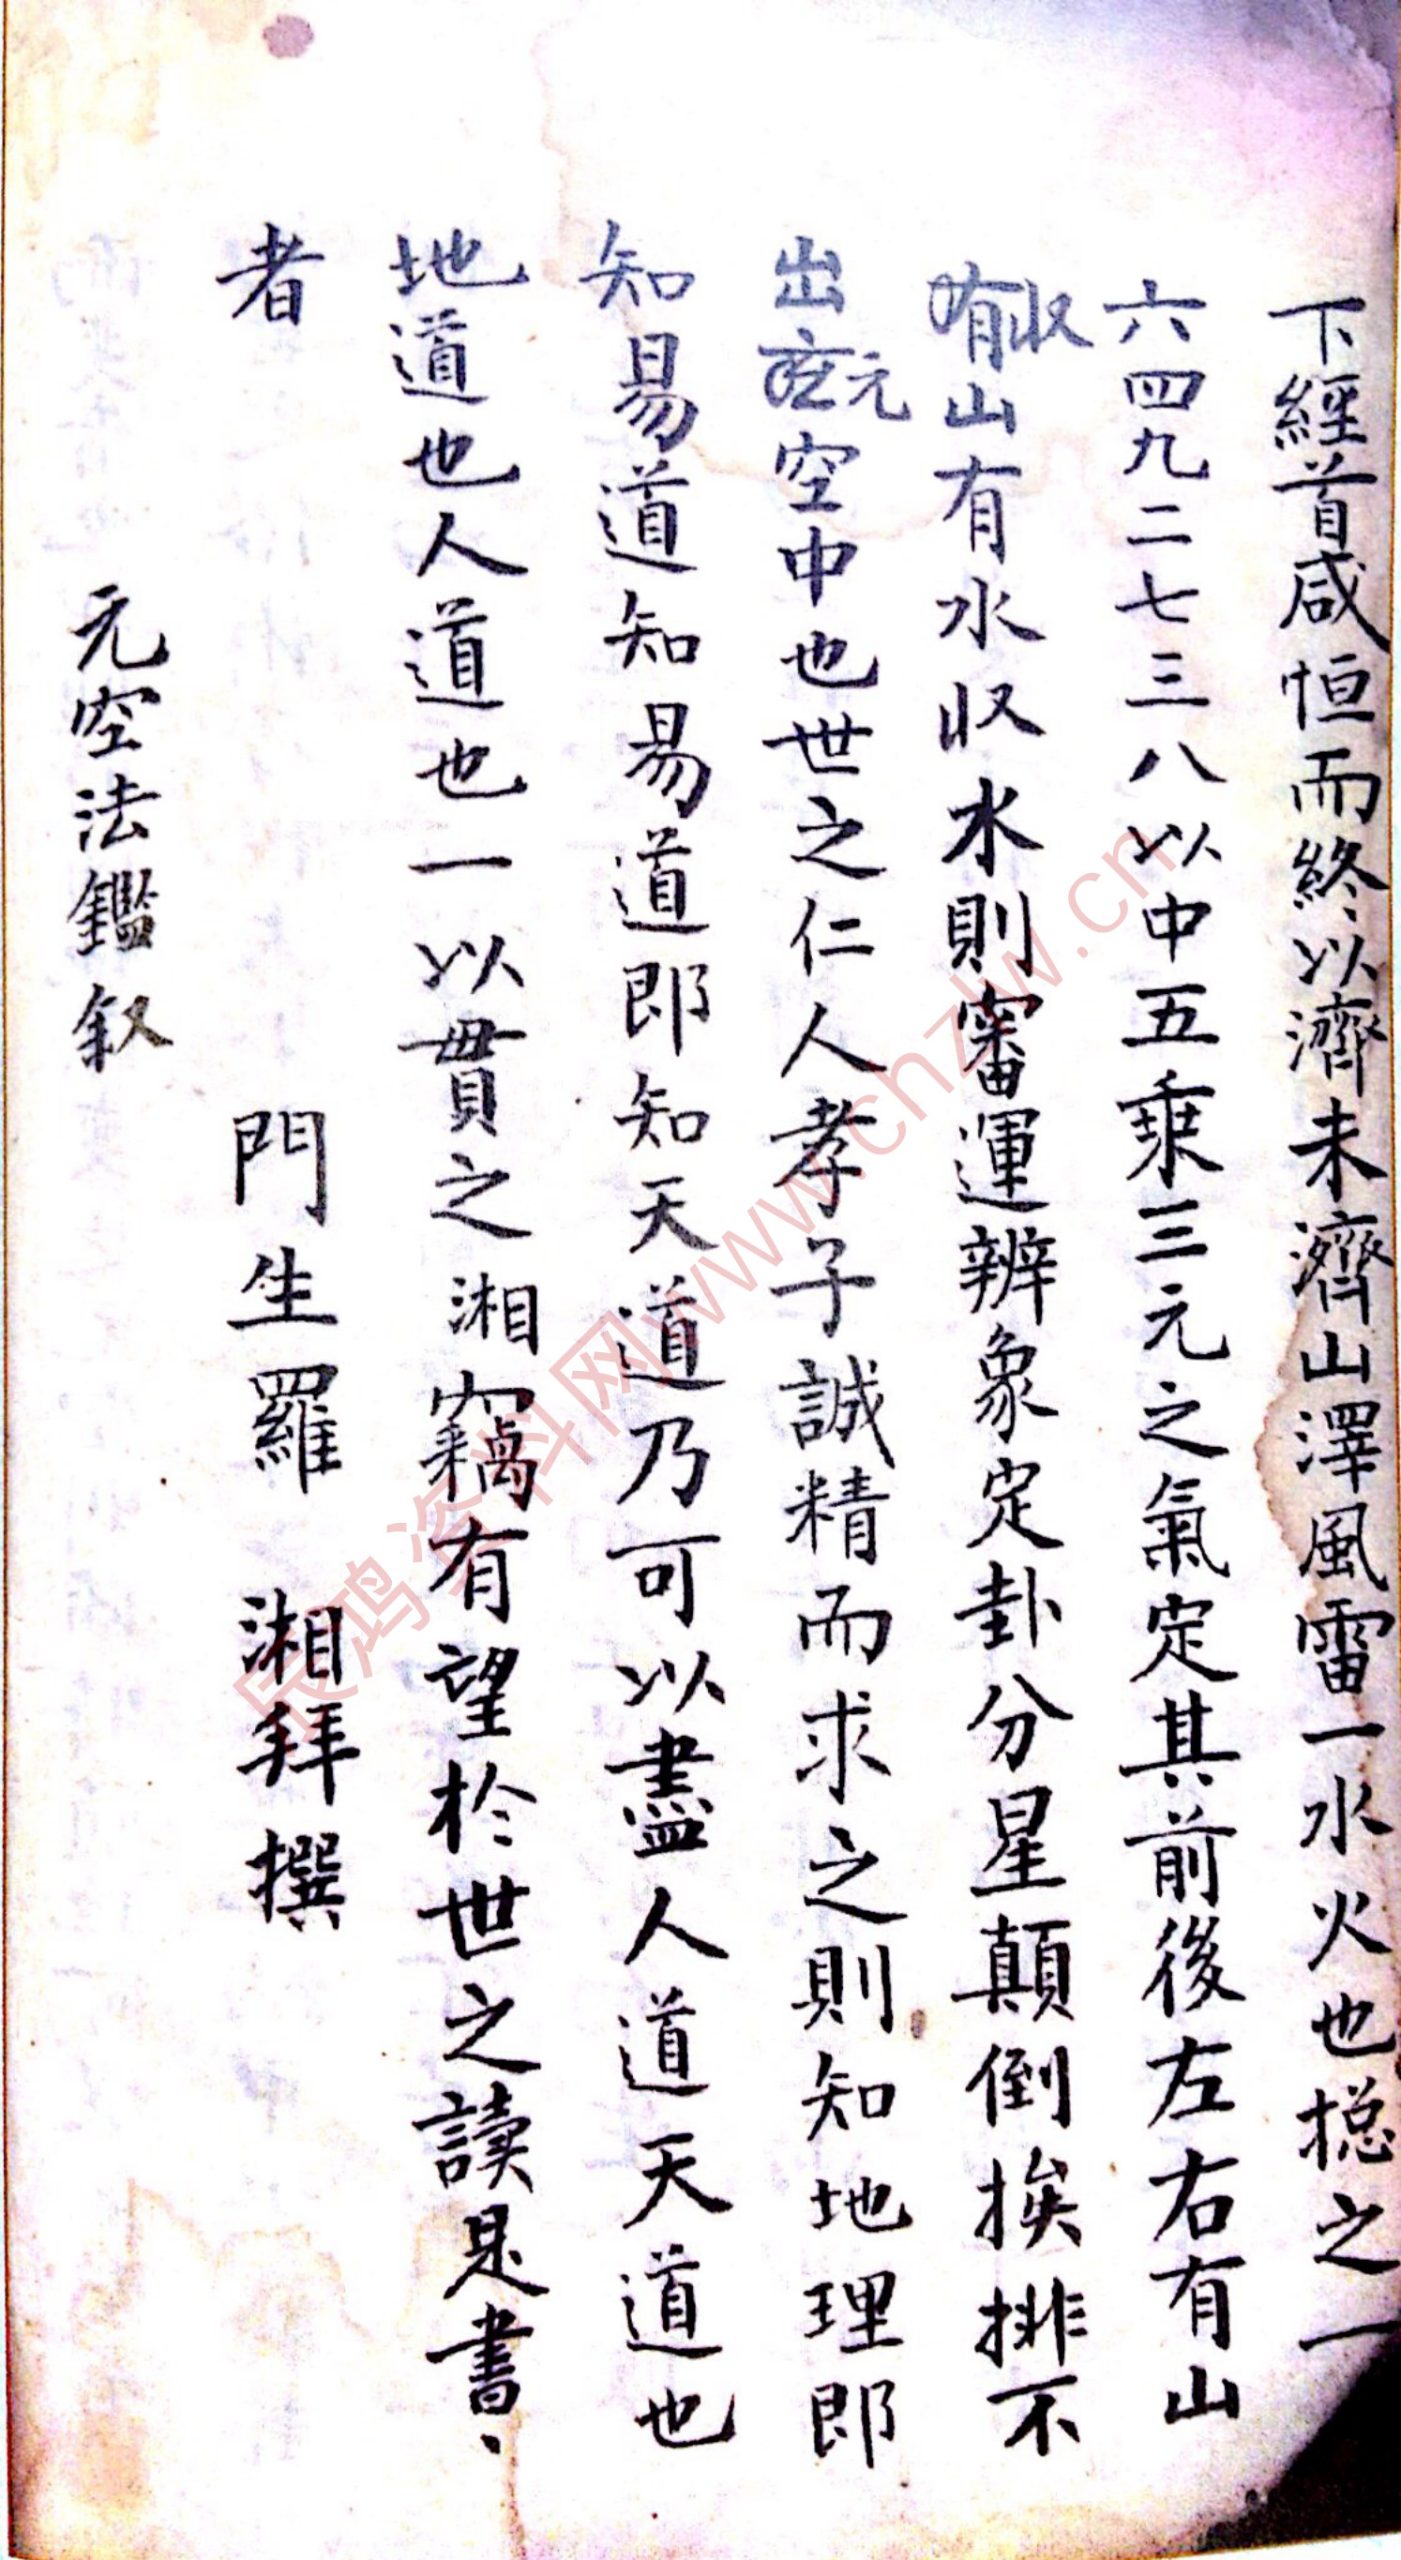 下經首咸恒而終以濟未濟山澤風雷一水火也揔之一
六四九二七三八以中五乗三元之氣定其前後左右有山
收山有水収水則審運辨象定卦分星顛倒挨排不
出元空中也世之仁人孝子誠精而求之則知地理即
知易道知易道即知天道乃可以盡人道天道也
地道也人道也一以貫之湘竊有望於世之讀是書、
者
門生羅 湘拜撰
元空法鑑叙
辰鸿资料网www.chzlw.cn